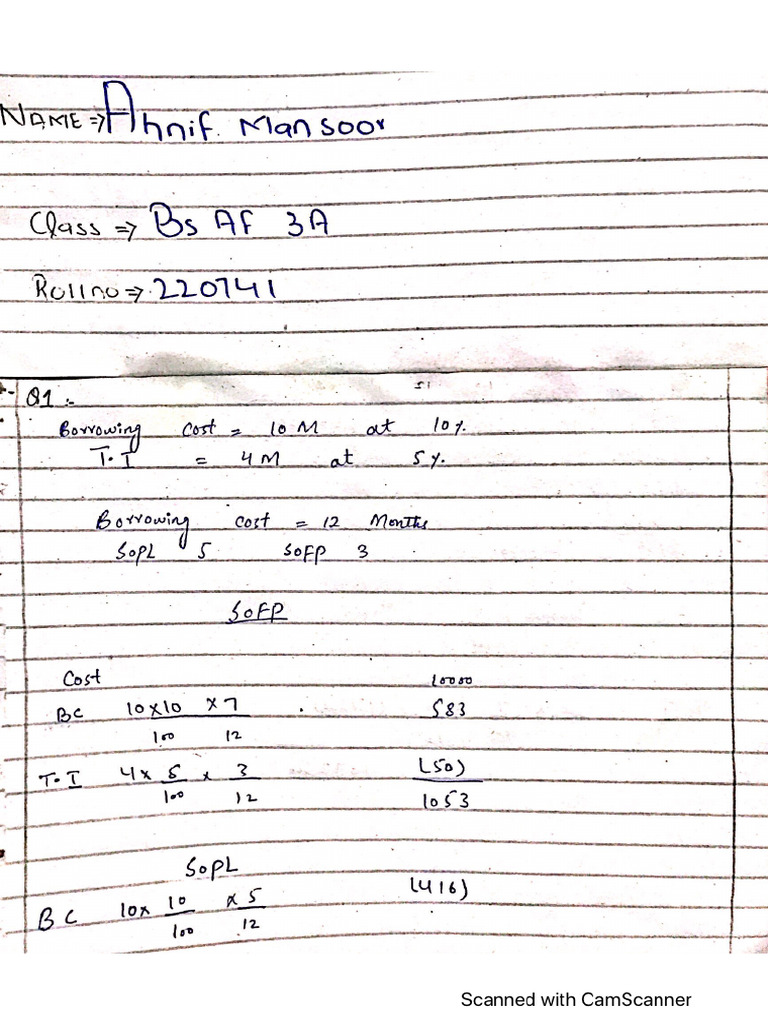 NAME ⇒ Ahnif. Mansoor
Class ⇒ Bs AF 3A
Roll no ⇒ 220741
Q1 :-
Borrowing Cost = 10 M at 10%.
T.I = 4 M at 5%.
Borrowing cost = 12 Months
SOPL 5 SOFP 3
SOFP
Cost 10000
BC 10×10 × 7 583
100 12
T.I 4 × 5 × 3 (50)
100 12 1053
SOPL
BC 10 × 10 × 5 (416)
100 12
Scanned with CamScanner